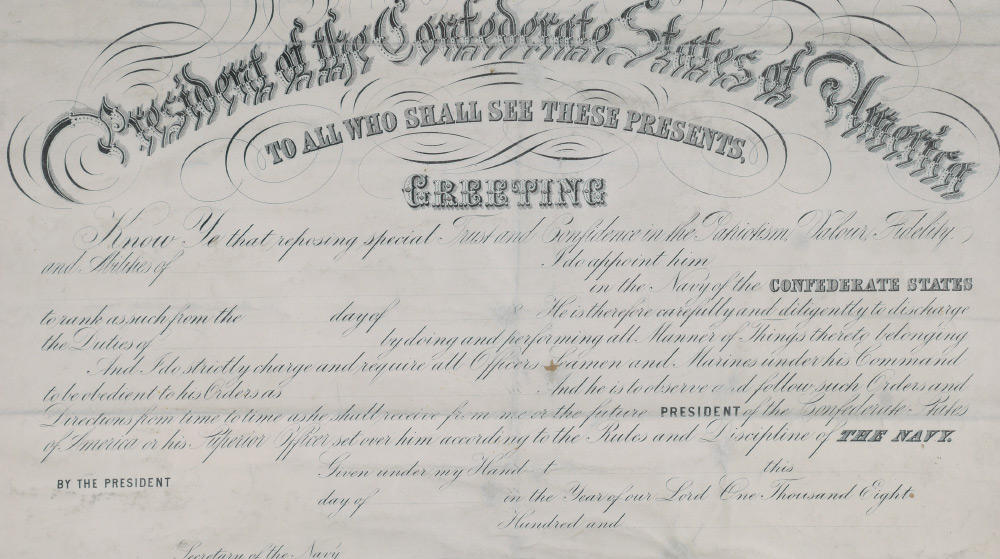 President of the Confederate States of America
TO ALL WHO SHALL SEE THESE PRESENTS,
GREETING
Know Ye that reposing special Trust and Confidence in the Patriotism, Valour, Fidelity,
and Abilities of I do appoint him
in the Navy of the CONFEDERATE STATES
to rank as such from the day of 8 He is therefore carefully and diligently to discharge
the Duties of by doing and performing all Manner of Things thereto belonging
And I do strictly charge and require all Officers Seamen and Marines under his Command
to be obedient to his Orders as And he is to observe and follow such Orders and
Directions from time to time as he shall receive from me or the future PRESIDENT of the Confederate States
of America or his Superior Officer set over him according to the Rules and Discipline of THE NAVY.
Given under my Hand t this
BY THE PRESIDENT
day of in the Year of our Lord One Thousand Eight
Hundred and
Secretary of the Navy